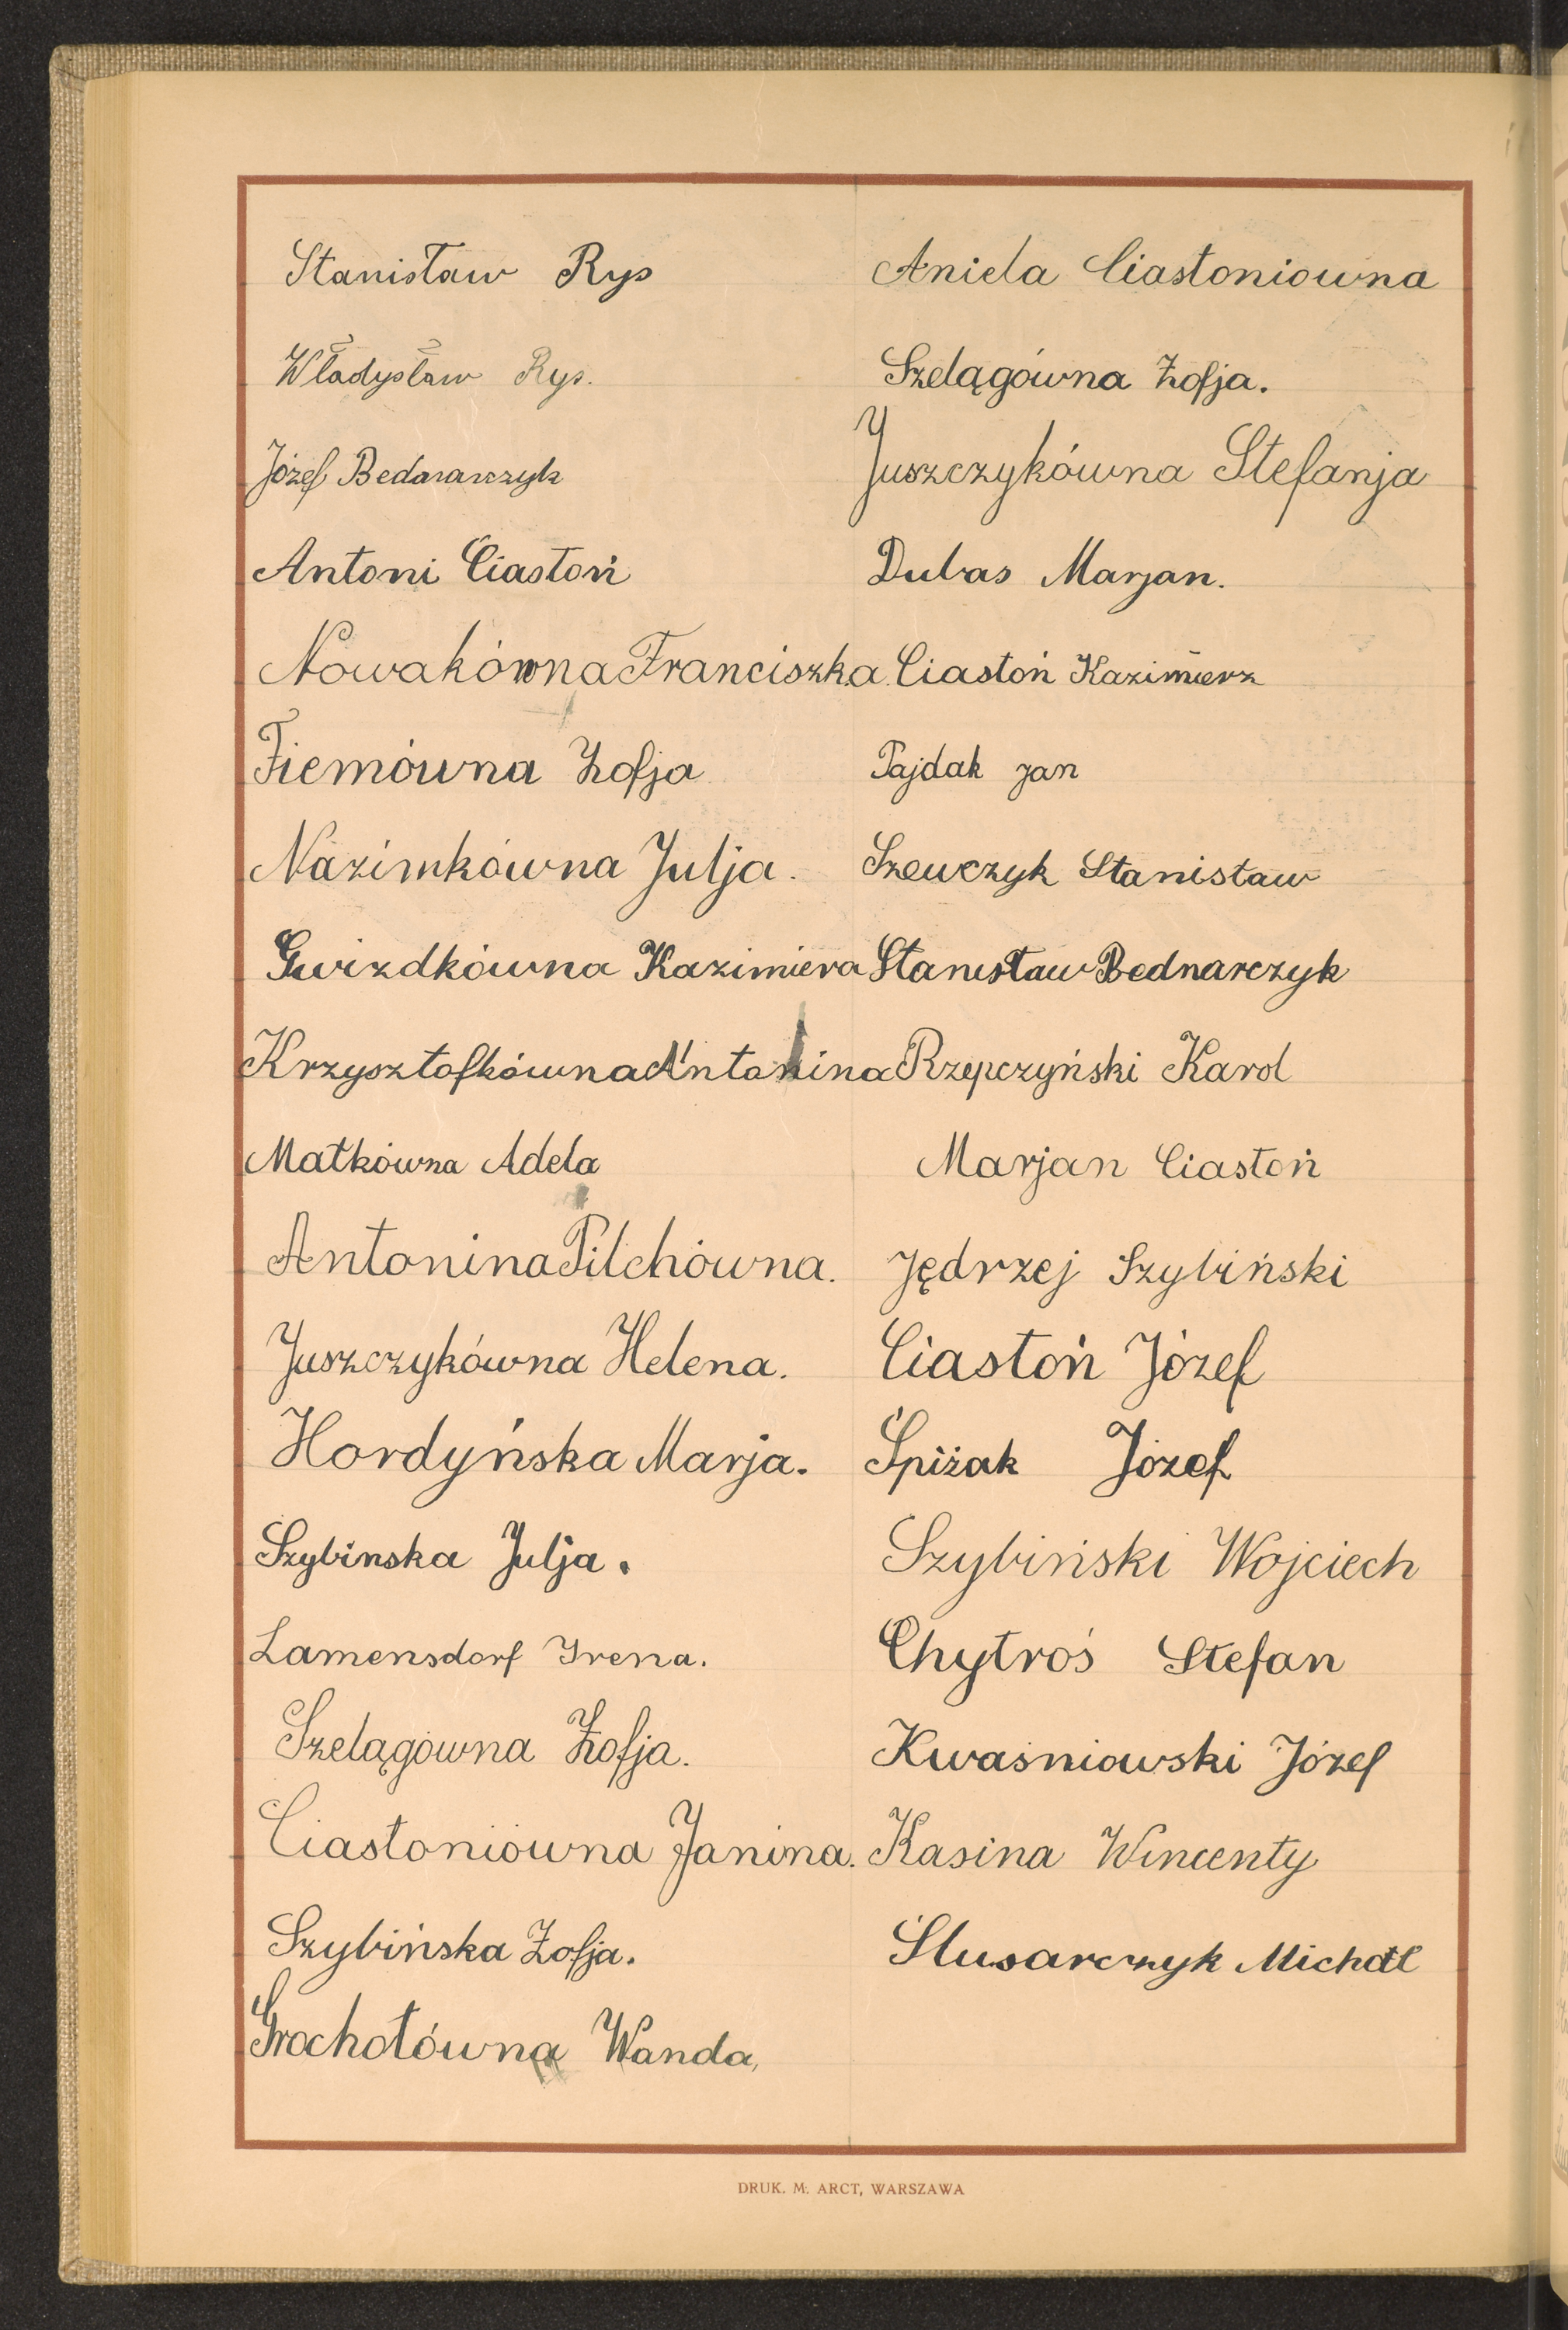 Stanisław Rys
Władysław Rys.
Józef Bednarczyk
Antoni Ciastoń
Nowakówna Franciszka
Fiemówna Zofja
Nazimkówna Julja.
Gwizdkówna Kazimiera
Krzysztofkówna Antonina
Matkówna Adela
Antonina Pilchówna.
Juszczykówna Helena.
Hordyńska Marja.
Szybinska Julja.
Lamensdorf Irena.
Szelągówna Zofja.
Ciastoniówna Janina.
Szybińska Zofja.
Grochotówna Wanda,
Aniela Ciastoniowna
Szelągówna Zofja.
Juszczykówna Stefanja
Dubas Marjan.
Ciastoń Kazimierz
Pajdak Jan
Szewczyk Stanisław
Stanisław Bednarczyk
Rzepczyński Karol
Marjan Ciastoń
Jędrzej Szybiński
Ciastoń Józef
Śpiżak Józef
Szybiński Wojciech
Chytroś Stefan
Kwaśniowski Józef
Kasina Wincenty
Ślusarczyk Michał
DRUK. M. ARCT, WARSZAWA